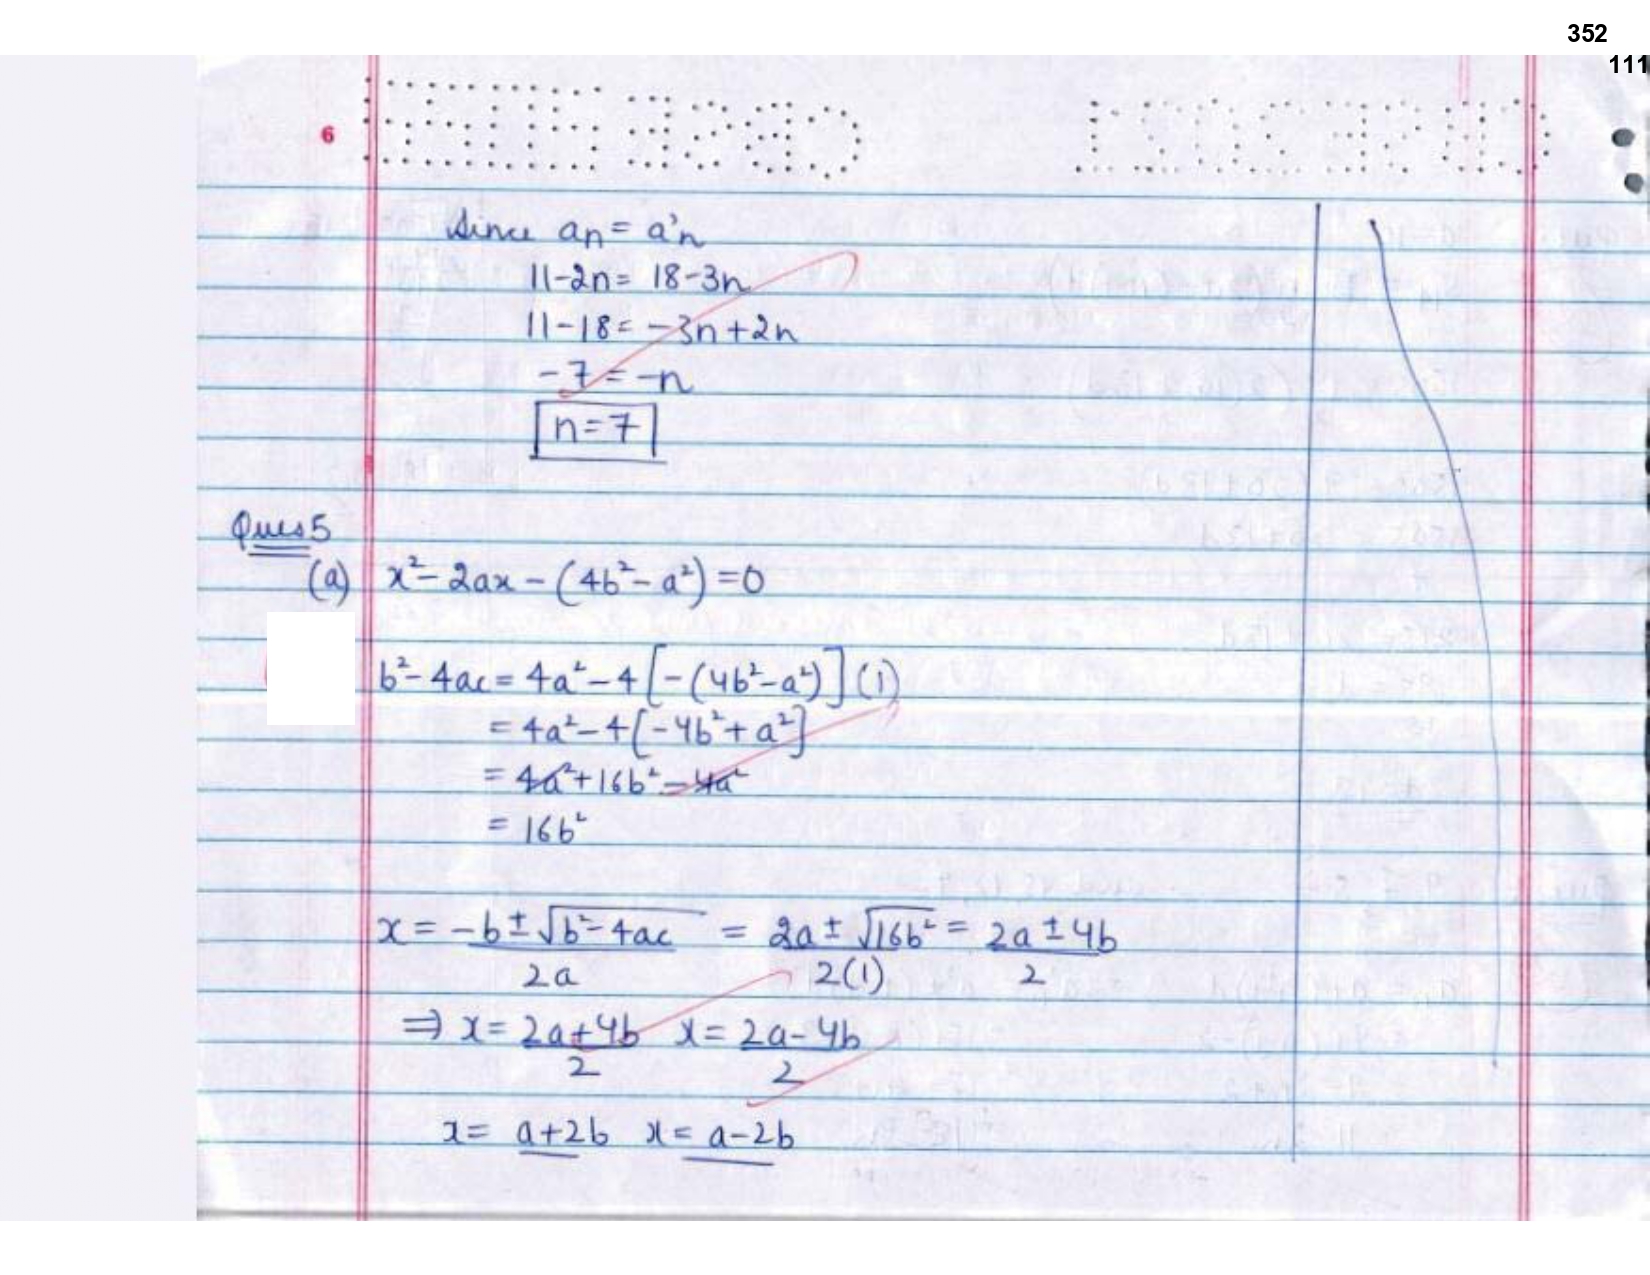 352
111
6
Since an = a'n
11-2n = 18-3n
11-18 = -3n+2n
-7 = -n
n=7
Ques 5
(a) x² - 2ax - (4b² - a²) = 0
b² - 4ac = 4a² - 4[-(4b² - a²)](1)
= 4a² - 4[-4b² + a²]
= 4a² + 16b² - 4a²
= 16b²
x = -b ± √b² - 4ac = 2a ± √16b² = 2a ± 4b
2a 2(1) 2
⇒ x = 2a+4b x = 2a-4b
2 2
x = a+2b x = a-2b